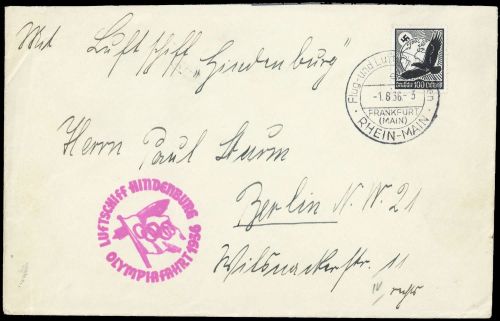 Mit Luftschiff „Hindenburg"
Flug- und Luft
-1.8.36.-3
FRANKFURT
(MAIN)
RHEIN-MAIN
Deutsche 100 Luftpost
Herrn Paul Sturm
Berlin N.W. 21
Wilsnackerstr. 11
IV rechts
LUFTSCHIFF HINDENBURG
OLYMPIAFAHRT 1936